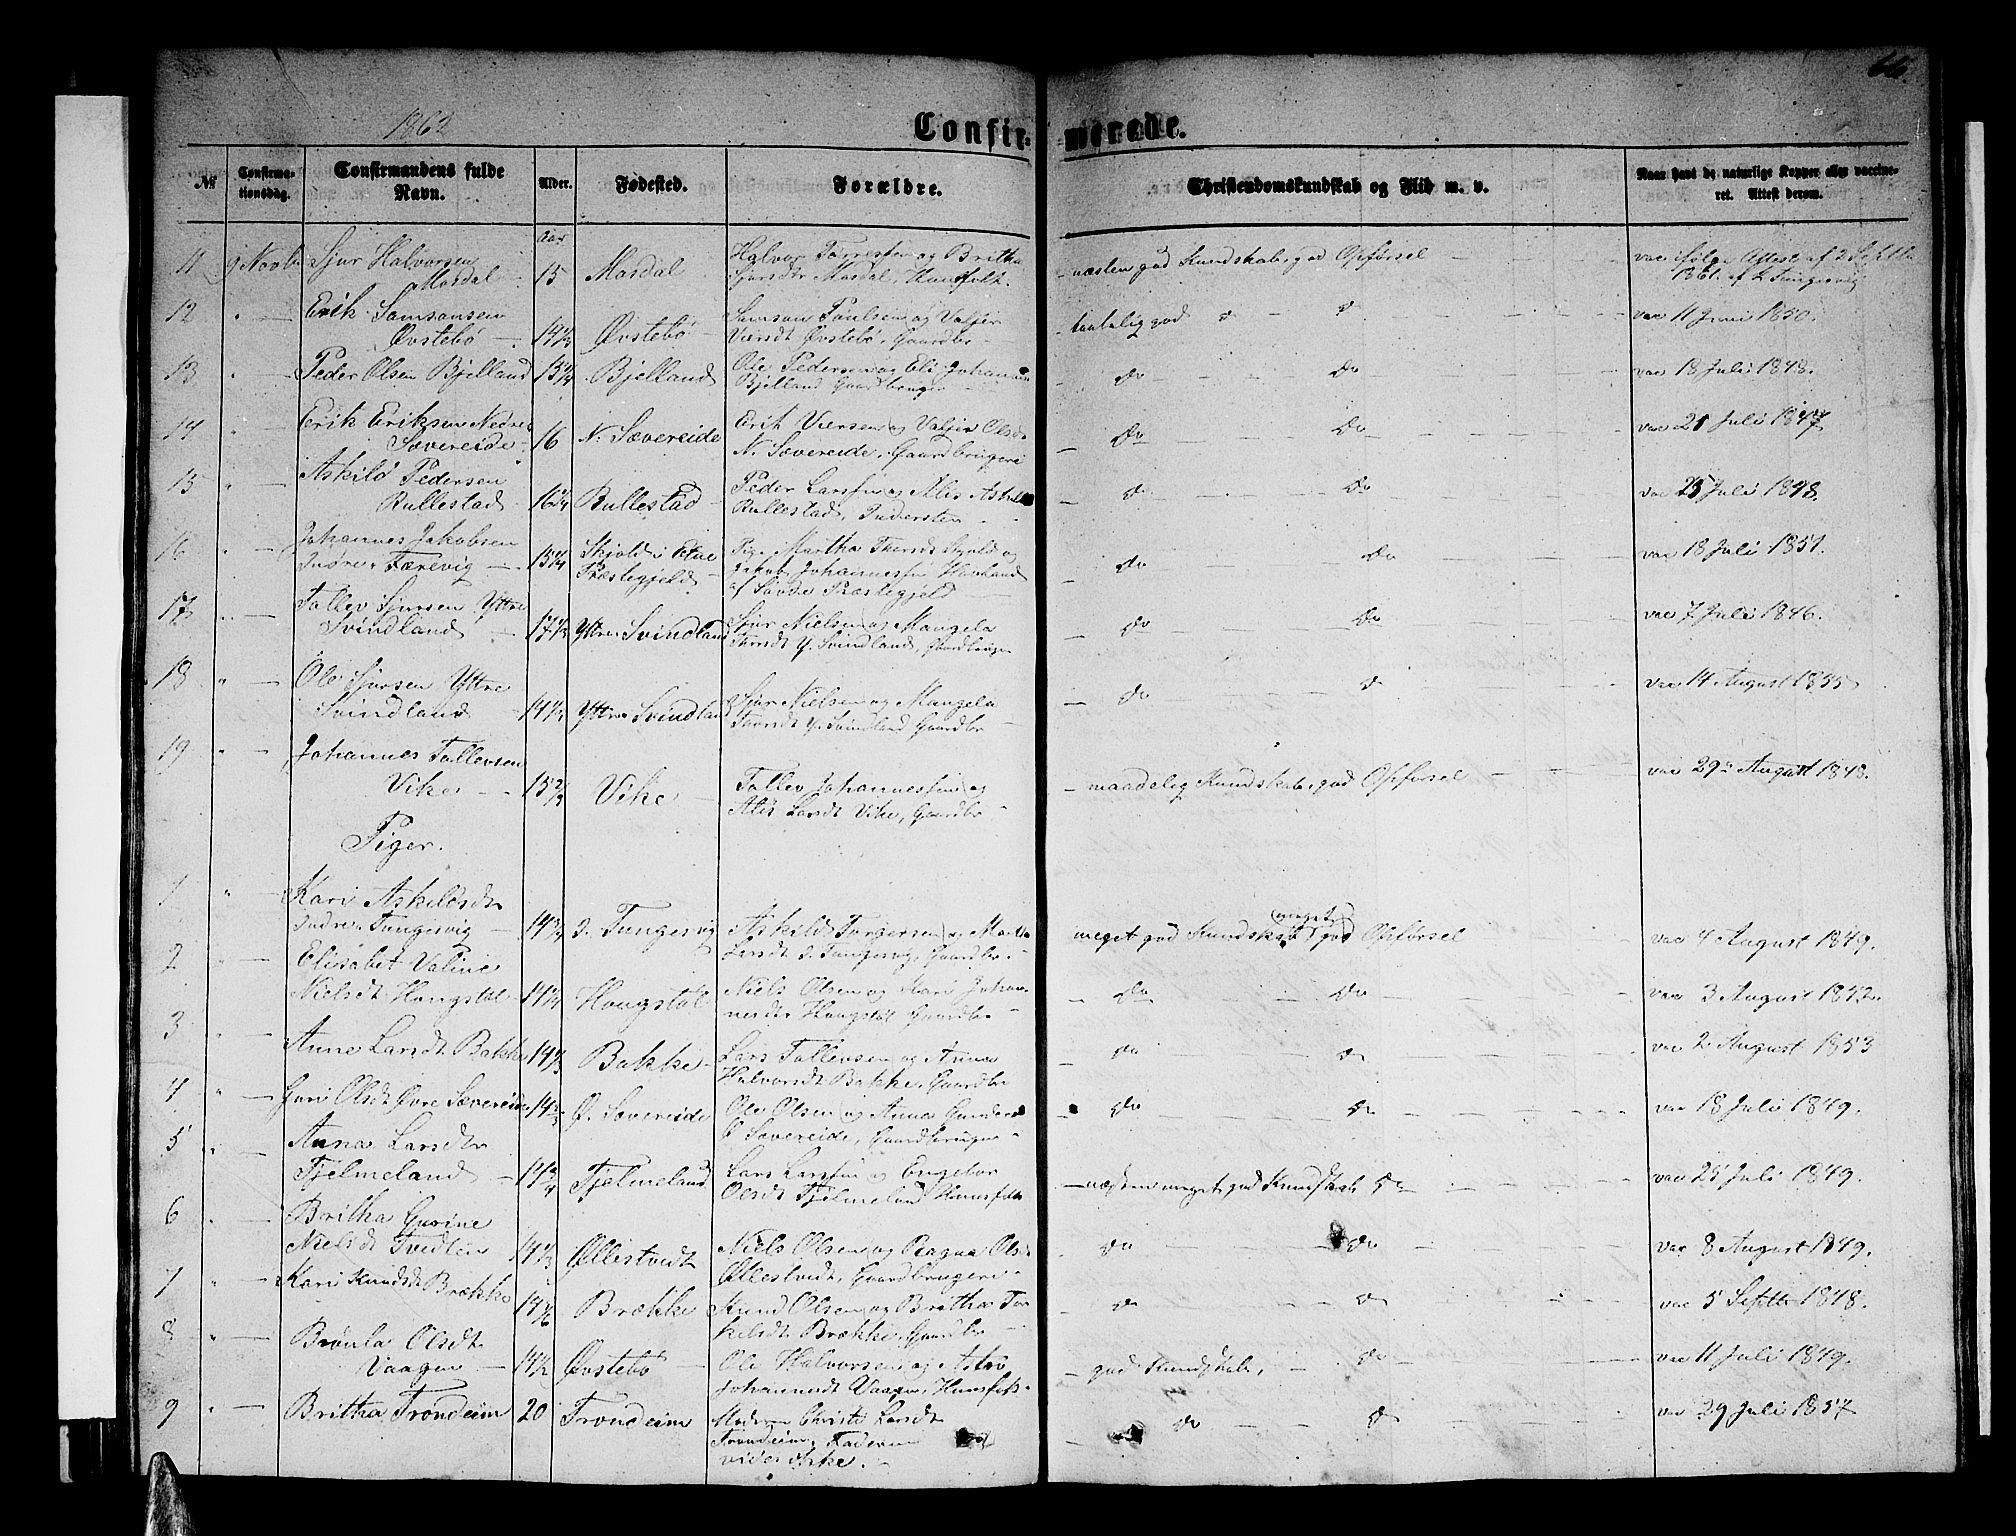 66.
1862
Confir-
merede.
№
Confirma-
tionsdag.
Confirmandens fulde
Navn.
Alder.
Fødested.
Forældre.
Christendomskundskab og Flid m. v.
Naar havt de naturlige Kopper eller vaccine-
ret. Attest derom.
Aar
11 9 Novbr Sjur Halvorsen
Mosdal 15 Mosdal
Halvor Torressen og Britha
Sjursdtr Mosdal, Huusfolk.
næsten god Kundskab, god Opførsel
vac ifølge Attest af 2 Septbr
1861. af L Tungesvig
12 " Erik Samsonsen
Øvstebø 14 1/3 Øvstebø
Samson Poulsen og Valgjer
Øvstebø, Gaardbr
taalelig god do do
vac 11 Juni 1850.
13 " Peder Olsen Bjelland 15 1/4 Bjelland
Ole Pedersen og Eli Johannes
Bjelland Gaardbruger
do do
vac 18 Juli 1848.
14 " Erik Eriksen Nedre
Sævereide 16 N. Sævereide
Erik og Valgjer Olsdr
N. Sævereide, Gaardbrugere
do do
vac 21 Juli 1847
15 " Askild Pedersen
Rullestad 16 3/4 Rullestad
Peder Larssen og Alis
Rullestad, Inderster
do do
vac 25 Juli 1848.
16 " Johannes Jakobsen
Indre Færevig 15 1/4 Skjold i Etne
Præstegjeld
Pige Martha og
Jakob Johannessen Havland
af Sævde Præstegjeld
do do
vac 18 Juli 1851.
17 " Tollev Sjursen Yttre
Svindland 17 1/2 Yttre Svindland
Sjur Nielsen og Mangela
Y. Svindland, Gaardbruger
do do
vac 7 Juli 1846.
18 " Ole Sjursen Yttre
Svindland 14 1/2 Yttre Svindland
Sjur Nielsen og Mangela
Y. Svindland Gaardbr
do do
vac 14 August 1855
19 " Johannes Tollevsen
Vike 15 Vike
Tollev Johannessen og
Alis Larsdt Vike, Gaardbr
maadelig Kundskab, god Opførsel
vac 29 August 1848.
Piger.
1 " Kari Askildsdtr
Indre Tungesvig 14 3/4 I. Tungesvig
Askild Torgersen og Martha
Larsdt I. Tungesvig, Gaardbr.
meget god Kundskab meget god Opførsel
vac 4 August 1849.
2 " Elisabet Valine
Nielsdt Hougstøl 14 1/4 Hougstøl
Niels Olsen og Kari Johan-
nesdtr Hougstøl Gaardbr
do do
vac 3 August 1842.
3 " Anne Larsdt Bakke 14 1/3 Bakke
Lars Tollevsen og Anna
Halvorsdt Bakke, Gaardbr
do do
vac 2 August 1853
4 " Guri Olsdt Øvre Sævereide 14 2/3 Ø. Sævereide
Ole Olsen og Anna
Ø Sævereide, Gaardbruger
do do
vac 18 Juli 1849.
5 " Anna Larsdtr
Fjelmeland 14 3/4 Fjelmeland
Lars Larssen og Engebor
Olsdt Fjelmeland Huusfolk
næsten meget god Kundskab do
vac 25 Juli 1849.
6 " Britha Gurine
Nielsdt Tvedten 14 1/3 Øllestvedt
Niels Olsen og Ragna Ols-
Øllestvedt, Gaardbrugere
do do
vac 8 August 1849.
7 " Kari Knudsdt Brække
14 1/6 Brække
Knud Olsen og Britha Tor-
kelsdt Brække, Gaardbr
do do
vac 5 Septbr 1848.
8 " Brønla Olsdt
Vaagen 14 1/2 Øvstebø
Ole Halvorsen og Astri
Johannesdt Vaagen, Huusfolk
god Kundskab, do
vac 11 Juli 1849.
9 " Britha Trondeim 20 Trondeim
Moderen Christi Larsdt
Trondeim, Faderen
vides ikke.
do do
vac 29 Juli 1857